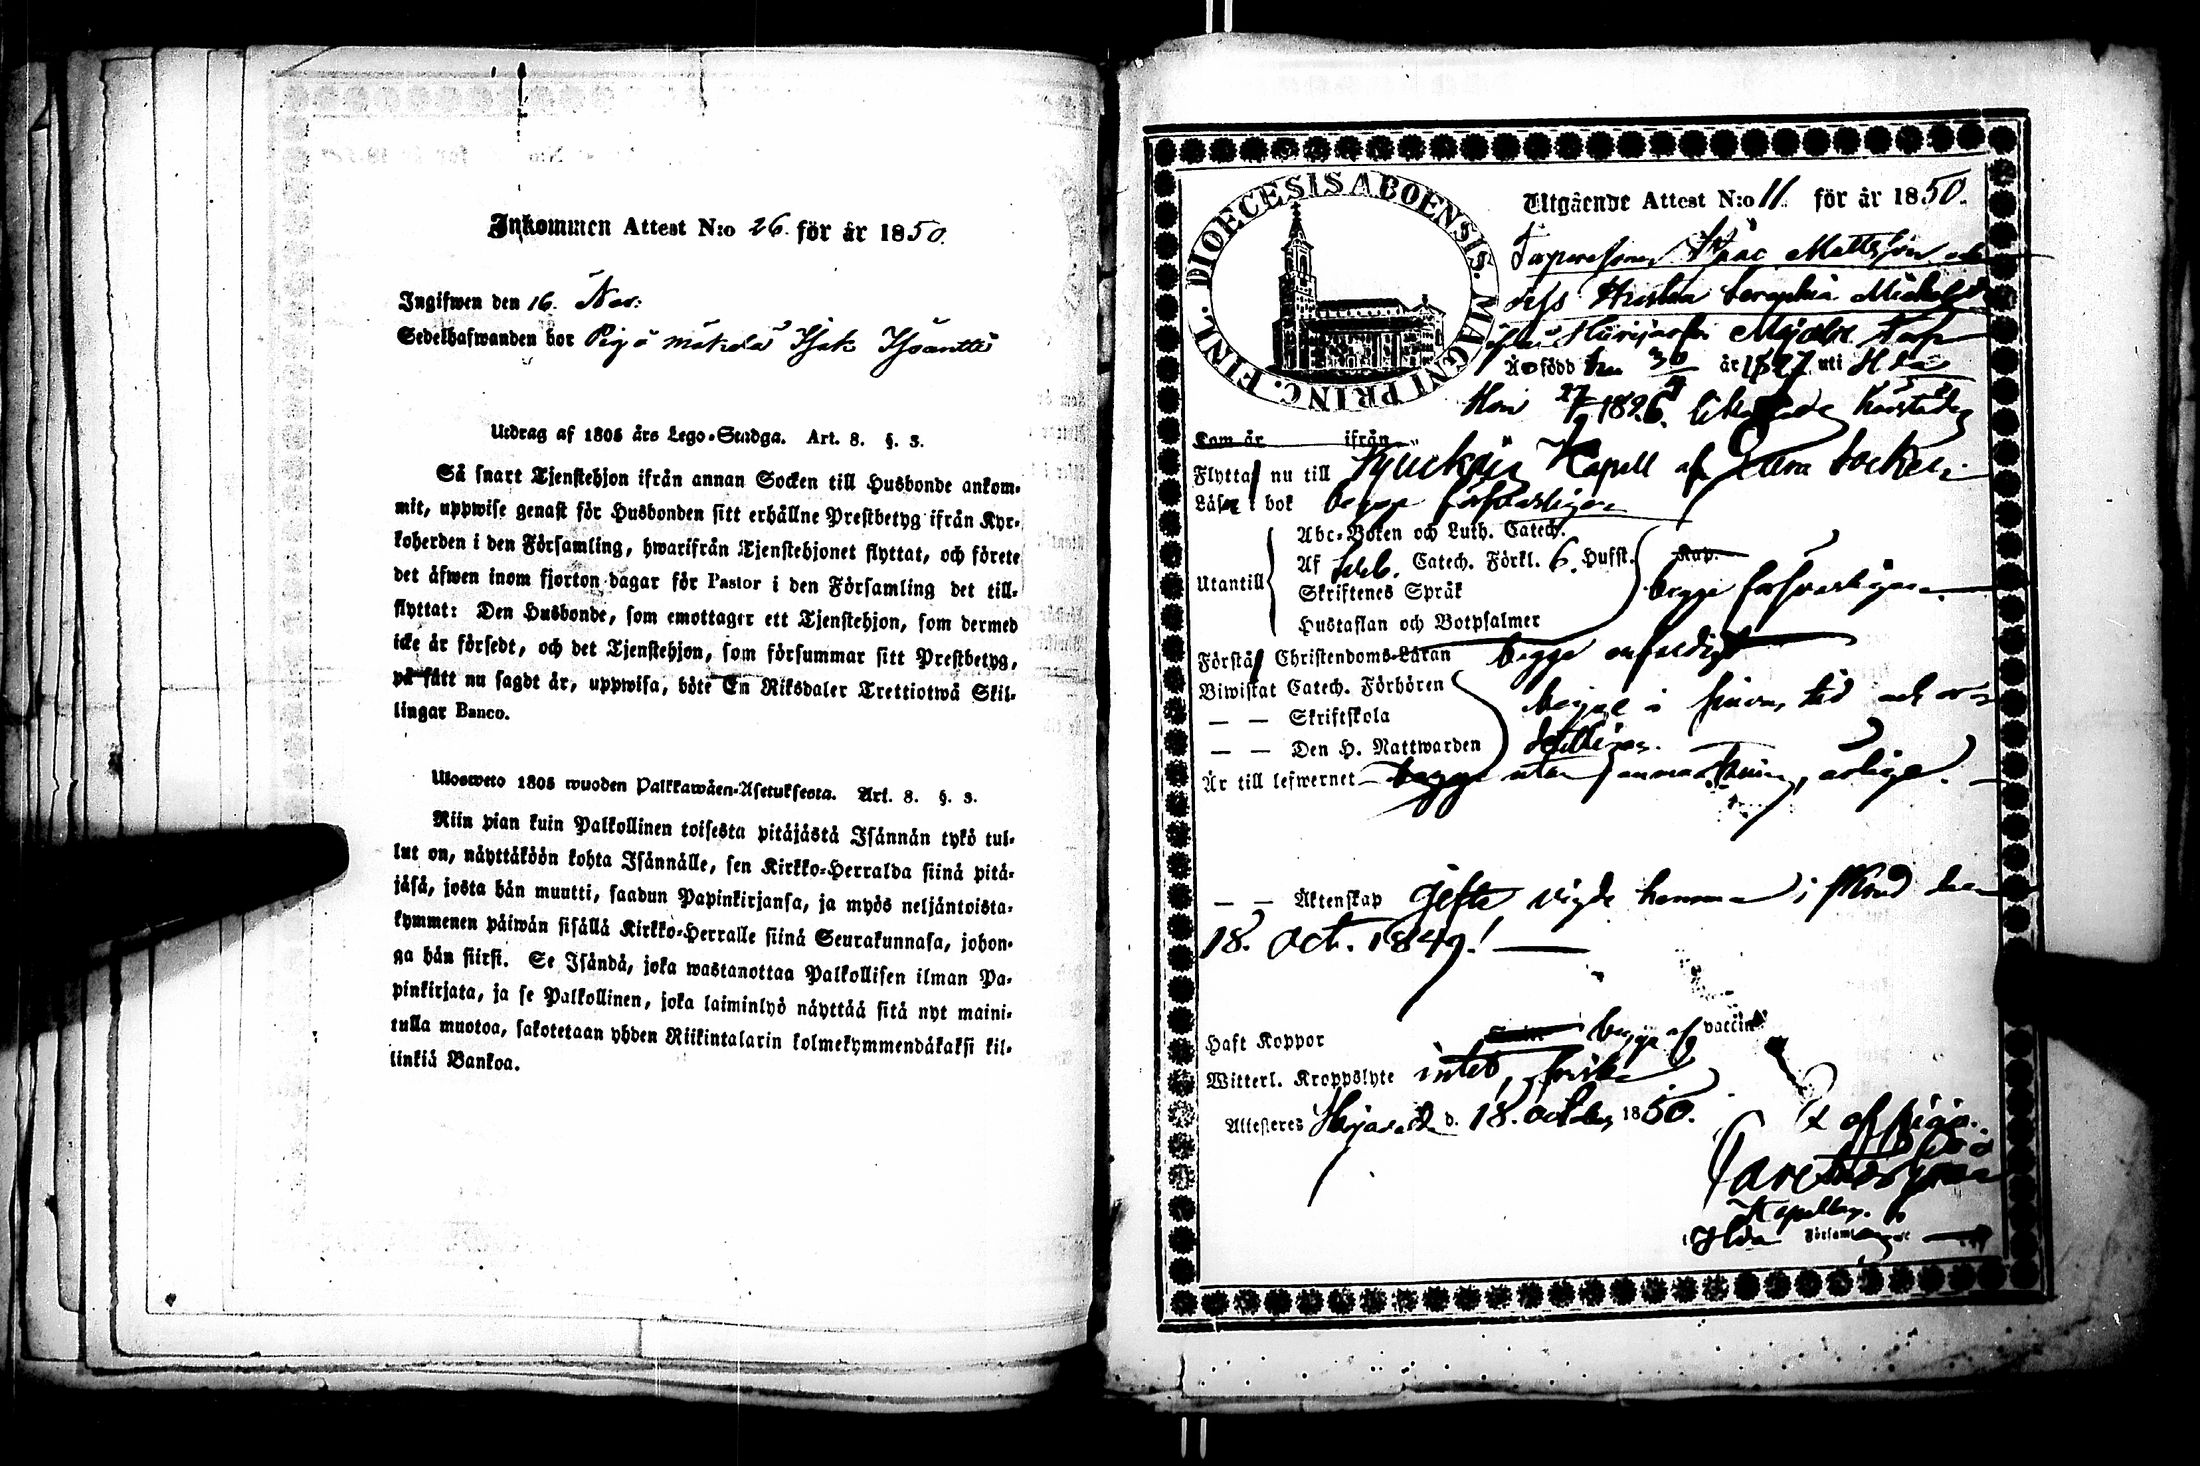 Inkommen Attest N:o 26. för år 1850.
Ingifwen den 16. Nov:
Sedelhafwanden bor
Utdrag af 1805 års Lego-Stadga. Art. 8. §. 3.
Så snart Tjenstehjon ifrån annan Socken till Husbonde ankom-
mit, uppwise genast för Husbonden sitt erhållne Prestbetyg ifrån Kyr-
koherden i den Församling, hwarifrån Tjenstehjonet flyttat, och förete
det äfwen inom fjorton dagar för Pastor i den Församling det till-
flyttat: Den Husbonde, som emottager ett Tjenstehjon, som dermed
icke är försedt, och det Tjenstehjon, som försummar sitt Prestbetyg,
på sätt nu sagdt är, uppwisa, böte En Riksdaler Trettiotwå Skil-
lingar Banco.
Ulosweto 1805 wuoden Palkkawäen-Asetuksesta. Art. 8. §. 3.
Niin pian kuin Palkollinen toisesta pitäjästä Isännän tykö tul-
lut on, näyttäköön kohta Isännälle, sen Kirkko-Herralda siinä pitä-
jäsä, josta hän muutti, saadun Papinkirjansa, ja myös neljäntoista-
kymmenen päiwän sisällä Kirkko-Herralle siinä Seurakunnasa, johon-
ga hän siirsi. Se Isändä, joka wastanottaa Palkollisen ilman Pa-
pinkirjata, ja se Palkollinen, joka laiminlyö näyttää sitä nyt maini-
tulla muotoa, sakotetaan yhden Riikintalarin kolmekymmendäkaksi kil-
linkiä Bankoa.
DIOECESIS ABOENSIS. MAGNI PRINC. FINL.
Utgående Attest N:o 11. för år 1850.
Isaac Mattsson och
dess Hustru Seraphia
Torp
Är född den 30 år 1827 uti
Hon 1826 likaledes härstädes
Kom år ifrån
Flytta nu till Kjuikais Kapell af Eura Socken.
Läsa i bok begge försvarligen
Abc-Boken och Luth. Catech.
Utantill Af Catech. Förkl. 6. Hufst. Kap.
Skriftenes Språk begge försvarligen.
Hustaflan och Botpsalmer
Förstå Christendoms-Läran begge enfaldigt
Biwistat Catech. Förhören begge i sinom tid och or-
— — Skriftskola
— — Den H. Nattwarden
Är till lefwernet begge utan anmärkning, ärlige.
— — Äktenskap gifte, vigde hemma i den
18. Oct. 1849.
Haft Koppor begge af vaccin
Witterl. Kroppslyte intet, friska
Attesteres d. 18. October 1850.
Ex officio.
Kapellan
Församling